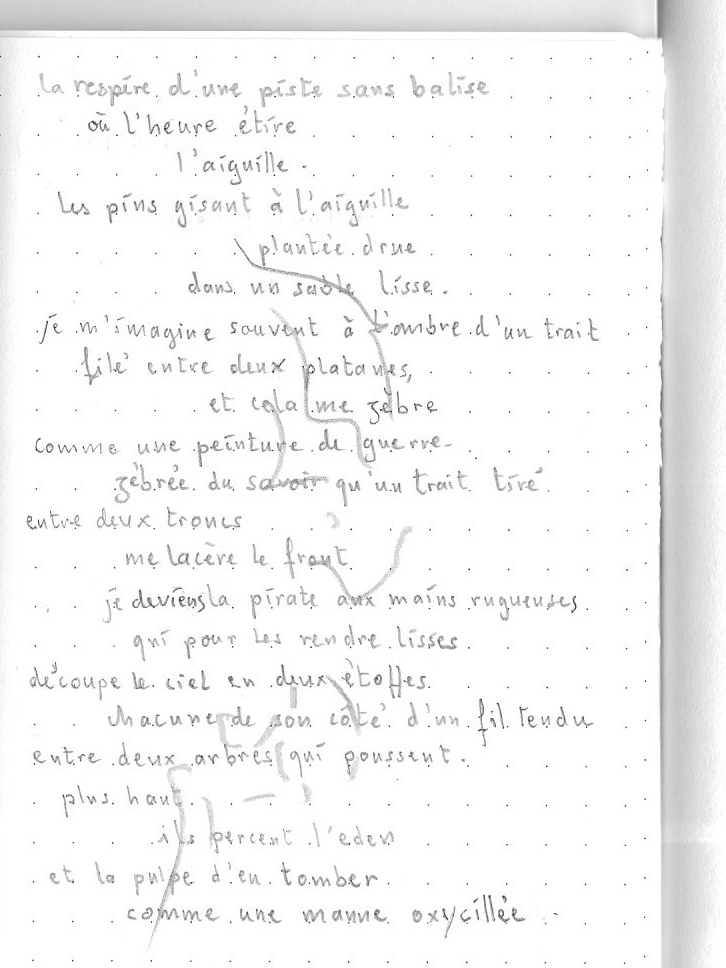 la respire d'une piste sans balise
où l'heure étire
l'aiguille.
les pins gisant à l'aiguille
plantée drue
dans un sable lisse.
je m'imagine souvent à l'ombre d'un trait
filé entre deux platanes,
et cela me zèbre
comme une peinture de guerre-
zébrée du savoir qu'un trait tiré
entre deux troncs
me lacère le front
je deviens la pirate aux mains rugueuses
qui pour les rendre lisses
découpe le ciel en deux étoffes.
chacune de son côté d'un fil tendu
entre deux arbres qui poussent.
plus haut
ils percent l'eden
et la pulpe d'en tomber
comme une manne oxycillée